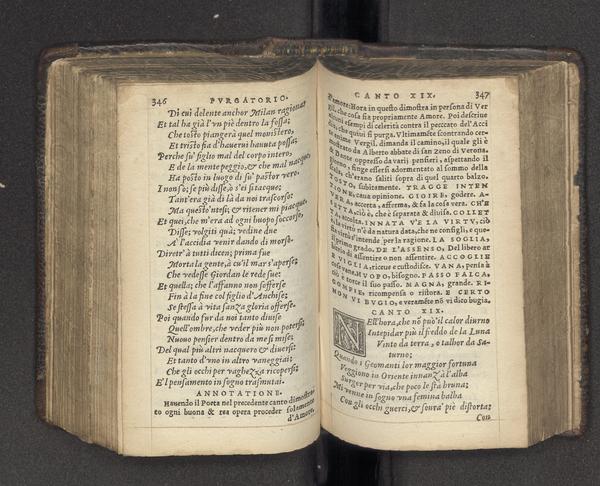 346 PVRGATORIO.
Di cui dolente anchor Milan ragiona;
Et tal ha già l'vn piè dentro la fossa;
Che tosto piangerà quel monistero,
Et tristo fia d'hauerui hauuta possa;
Perche su' figlio mal del corpo intero,
E de la mente peggio, & che mal nacque,
Ha posto in luogo di su' pastor vero.
I non so, se più disse, ò s'ei si tacque;
Tant'era già di là da noi trascorso:
Ma questo 'ntesi; & ritener mi piacque.
Et quei, che m'era ad ogni huopo soccorso,
Disse; volgiti quà; vedine due
A l'accidia venir dando di morso.
Diretr' à tutti dicen; prima fue
Morta la gente, à cu'il mar s'aperse;
Che vedesse Giordan le rede sue:
Et quella; che l'affanno non sofferse
Fin à la fine col figlio d'Anchise;
Se stessa à vita sanza gloria offerse.
Poi quando fur da noi tanto diuise
Quell'ombre, che veder più non potersi;
Nuouo pensier dentro da me si mise;
Del qual più altri nacquero & diuersi:
Et tanto d'vno in altro vaneggiai;
Che gli occhi per vaghezza ricopersi;
E'l pensamento in sogno trasmutai.
ANNOTATIONE.
Hauendo il Poeta nel precedente canto dimostra-
to ogni buona & rea opera proceder solamente
d'Amore,
CANTO XIX. 347
d'amore; Hora in questo dimostra in persona di Ver
gil, che cosa sia propriamente Amore. Poi descriue
alcuni esempi di celerità contra il peccato dell'Acci
dia, che quiui si purga. Vltimamẽte scontrando cer-
te anime Vergil. dimanda il camino, il quale gli è
mostrato da Alberto abbate di san Zeno di Verona.
& Dante oppresso da varij pensieri, aspettando il
giorno, finge essersi adormentato al sommo della
scala, ch'erano saliti sopra di quel quarto balzo.
TOSTO, subitamente. TRAGGE INTEN
caua opinione. GIOIRE, godere. A-
accetta, afferma, & fa la cosa vera. CH'E
ciò è, che è separata & diuisa. COLLET
accolta. INNATA V'E LA VIRTV, ciò
virtù n'è da natura data, che ne consigli, e que-
s'intende per la ragione. LA SOGLIA,
primo grado. DE L'ASSENSO, Del libero ar
bitrio di assentire o non assentire. ACCOGLIE
E VIGLIA, riceue e custodisce. VANA, pensa à
cose vane. HVOPO, bisogno. PASSO FALCA,
ciò è torce il suo passo. MAGNA, grande. RI-
COMPIE, ricompensa o ristora. E CERTO
NON VI BVGIO, & veramẽte nõ vi dico bugia.
CANTO XIX.
NEll'hora, che nõ può'l calor diurno
Intepidar più il freddo de la Luna
Vinto da terra, o talhor da Sa-
turno;
Quando i Geomanti lor maggior fortuna
Veggiono in Oriente innanzà l'alba
Surger per via, che poco le sta bruna;
Mi venne in sogno vna femina balba
Con gli occhi guerci, & soura' piè distorta;
Con